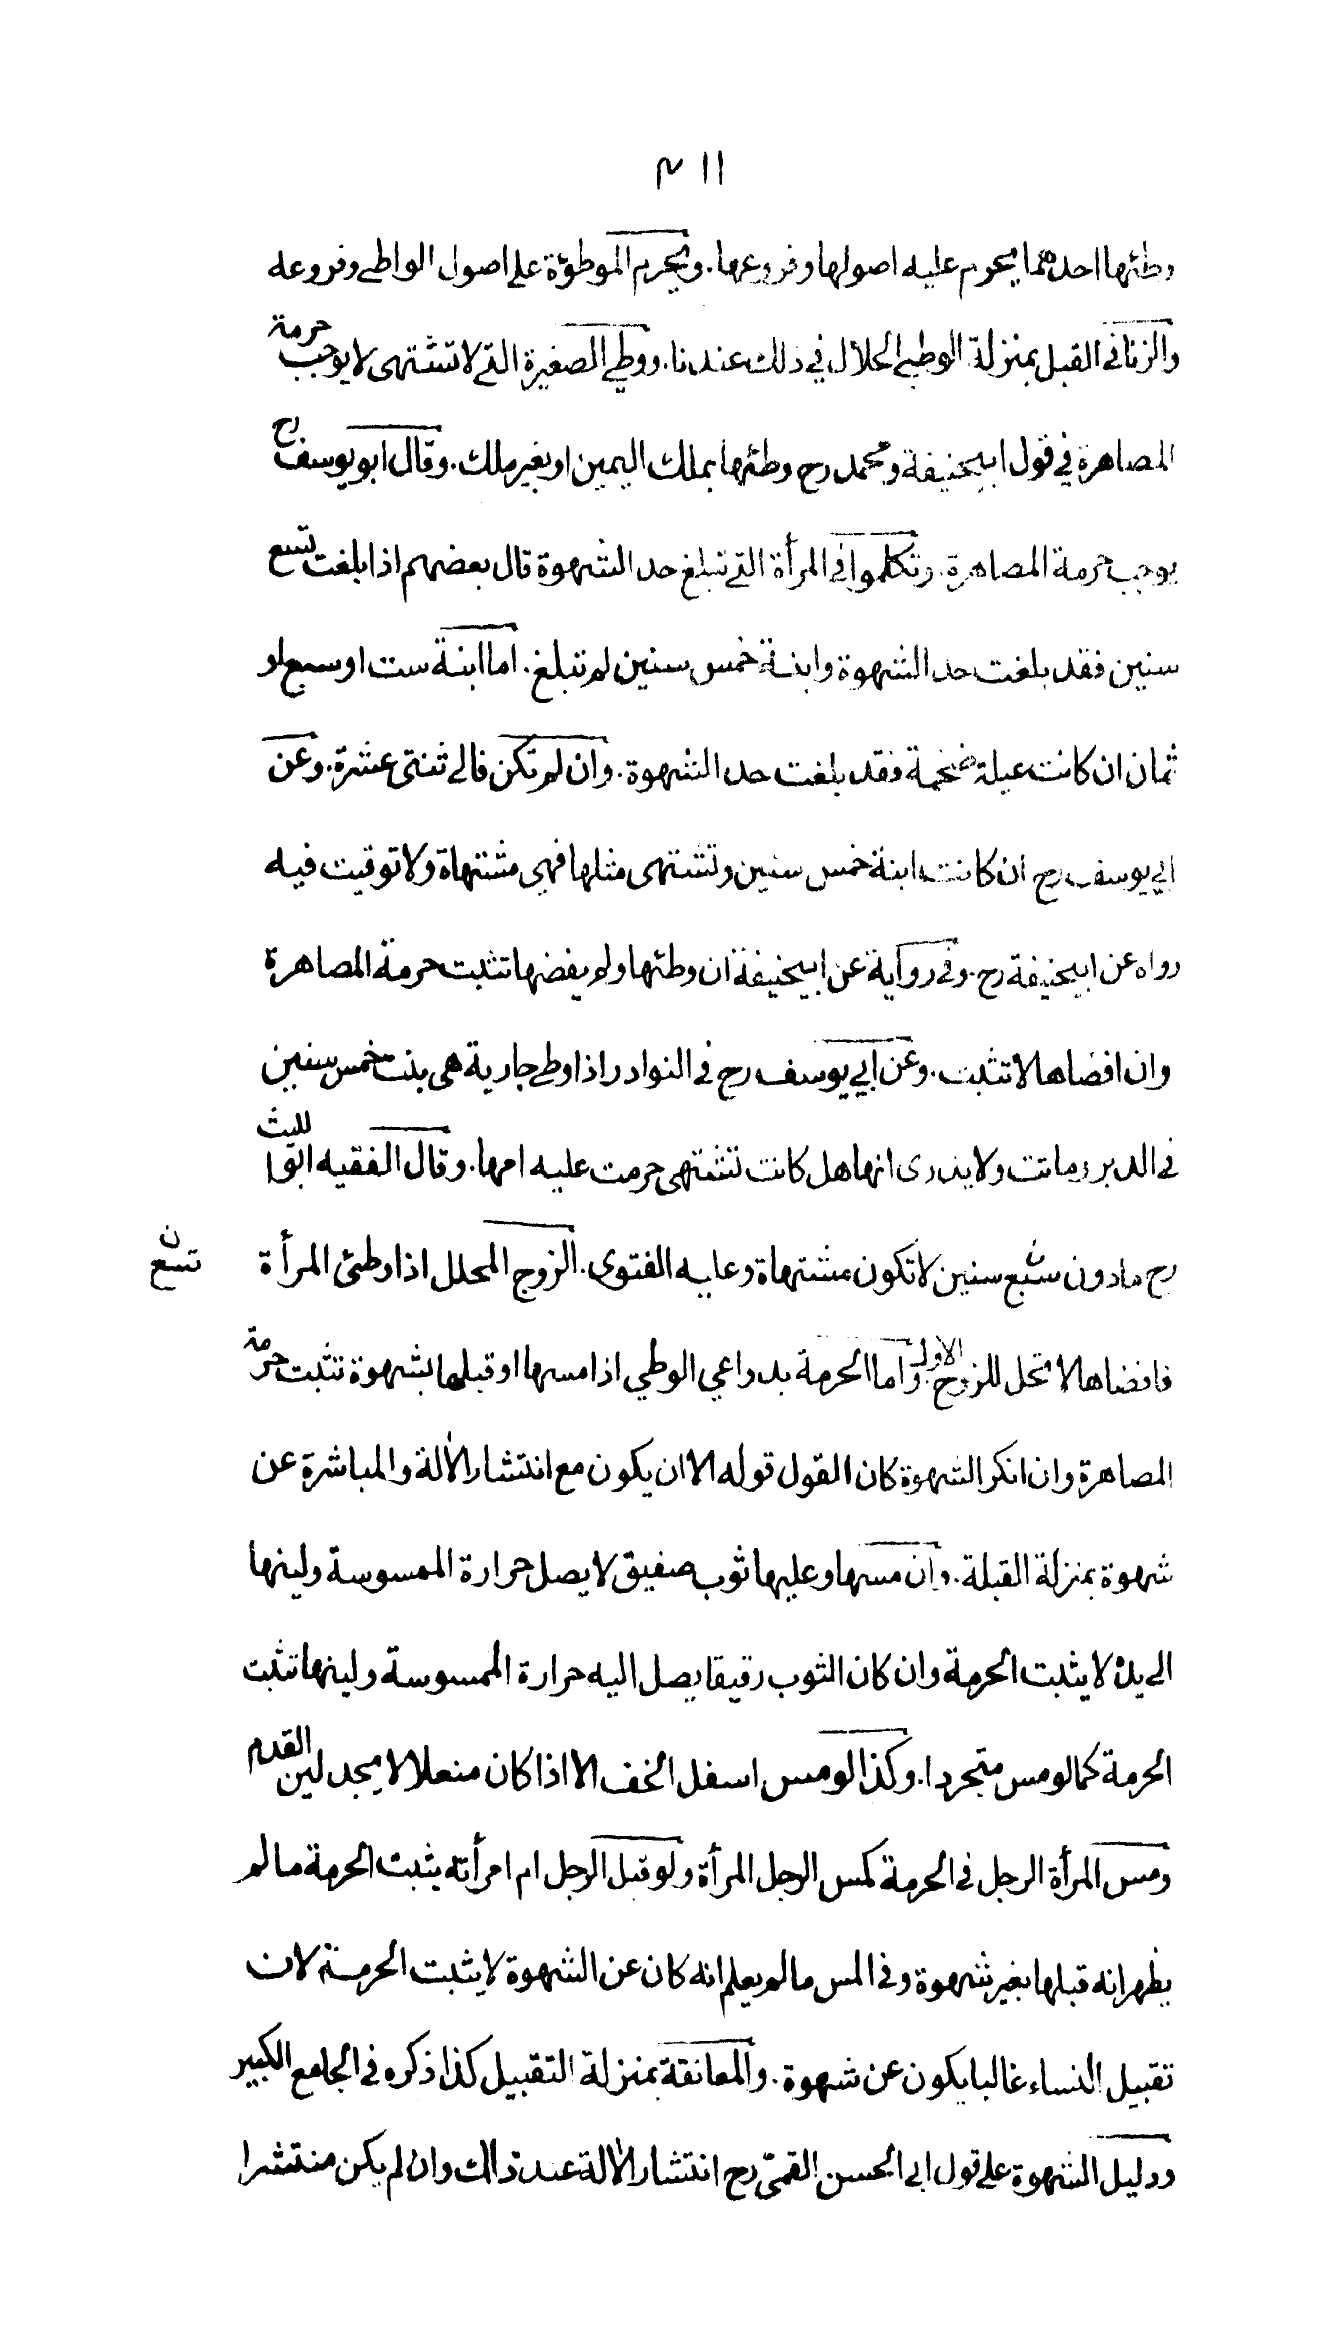 ٣١١
وطئها احدهما يحرم عليه اصولها وفروعها. ويحرم الموطوءة على اصول الواطى وفروعه
والزنا فى القبل بمنزلة الوطي الحلال في ذلك عندنا. ووطي الصغيرة التى لا تشتهى لا يوجب حرمة
المصاهرة في قول ابيحنيفة ومحمد رح وطئها بملك اليمين او بغير ملك. وقال ابو يوسف رح
يوجب حرمة المصاهرة. وتكلموا فى المرأة التى تبلغ حد الشهوة قال بعضهم اذا بلغت تسع
سنين فقد بلغت حد الشهوة وابنة خمس سنين لم تبلغ. اما ابنة ست او سبع او
ثمان ان كانت عبلة ضخمة فقد بلغت حد الشهوة. وان لم تكن فالى ثنتى عشرة. وعن
ابي يوسف رح ان كانت ابنة خمس سنين وتشتهى مثلها فهى مشتهاة ولا توقيت فيه
رواه عن ابيحنيفة رح. وفى رواية عن ابيحنيفة ان وطئها ولم يفضها تثبت حرمة المصاهرة
وان افضاها لا تثبت. وعن ابي يوسف رح فى النوادر اذا وطى جارية هى بنت خمس سنين
فى الدبر وماتت ولا يدرى انها هل كانت تشتهى حرمت عليه امها. وقال الفقيه ابو الليث
رح مادون سبع سنين لا تكون مشتهاة وعليه الفتوى. الزوج المحلل اذا وطئ المرأة
تسع ن
فافضاها لا تحل للزوج الاول واما الحرمة بدواعي الوطي اذا مسها او قبلها بشهوة تثبت حرمة
المصاهرة وان انكر الشهوة كان القول قوله الا ان يكون مع انتشار الألة والمباشرة عن
شهوة بمنزلة القبلة. وان مسها وعليها ثوب صفيق لا يصل حرارة الممسوسة ولينها
الى يده لا يثبت الحرمة وان كان الثوب رقيقا يصل اليه حرارة الممسوسة ولينها تثبت
الحرمة كما لو مس متجردا. وكذا لو مس اسفل الخف الا اذا كان منعلا لا يجد لين القدم
ومس المرأة الرجل فى الحرمة كمس الرجل المرأة ولو قبل الرجل ام امرأته يثبت الحرمة ما لم
يظهر انه قبلها بغير شهوة وفى المس ما لم يعلم انه كان عن الشهوة لا يثبت الحرمة لان
تقبيل النساء غالبا يكون عن شهوة. والمعانقة بمنزلة التقبيل كذا ذكره فى الجامع الكبير
ودليل الشهوة على قول ابى الحسن القمّي رح انتشار الألة عند ذالك وان لم يكن منتشرا